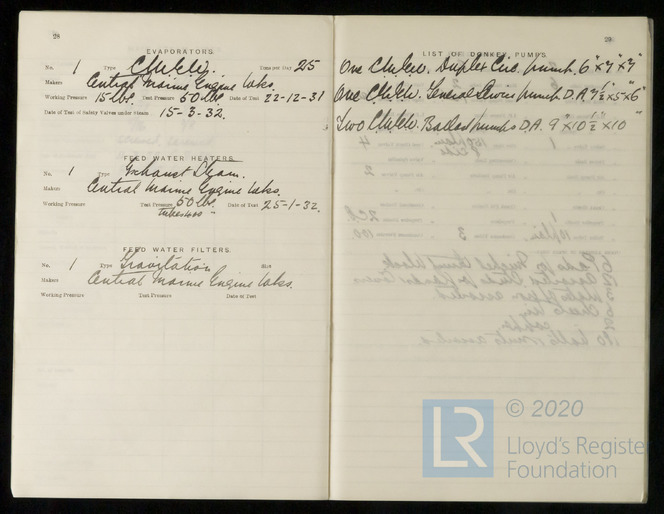 28
EVAPORATORS.
No. 1 Type C.M.E.W. Tons per Day 25
Makers Central Marine Engine Wks.
Working Pressure 15 lbs. Test Pressure 50 lbs. Date of Test 22-12-31
Date of Test of Safety Valves under Steam 15-3-32.
FEED WATER HEATERS.
No. 1 Type Exhaust Steam.
Makers Central Marine Engine Wks.
Working Pressure Test Pressure 50 lbs. Date of Test 25-1-32.
tubes 400 "
FEED WATER FILTERS.
No. 1 Type Gravitation Size
Makers Central Marine Engine Wks.
Working Pressure Test Pressure Date of Test
29
LIST OF DONKEY PUMPS.
One C.M.E.W. Duplex Circ. pump. 6" x 7" x 7"
One C.M.E.W. General Service pump D.A. 7½" x 5" x 6"
Two C.M.E.W. Ballast pumps D.A. 9" x 10½" x 10"
© 2020
LR
Lloyd's Register
Foundation